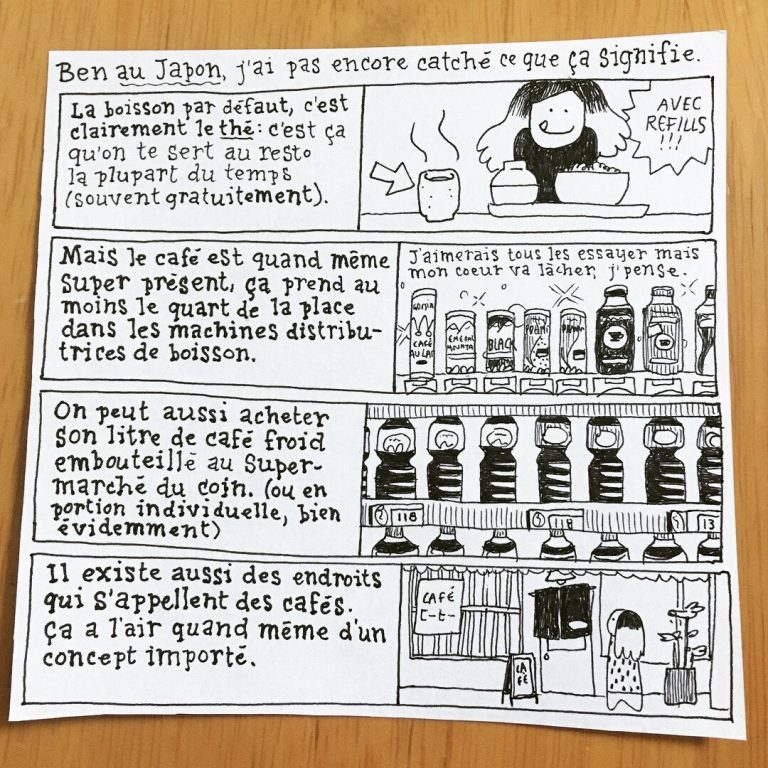 Ben au Japon, j'ai pas encore catché ce que ça signifie.
La boisson par défaut, c'est
clairement le thé: c'est ça
qu'on te sert au resto
la plupart du temps
(souvent gratuitement).
AVEC
REFILLS
!!!
Mais le café est quand même
super présent, ça prend au
moins le quart de la place
dans les machines distribu-
trices de boisson.
J'aimerais tous les essayer mais
mon coeur va lâcher, j'pense.
CAFÉ
AU LAIT
EMERAL
MOUNTA
BLACK
On peut aussi acheter
son litre de café froid
embouteillé au super-
marché du coin. (ou en
portion individuelle, bien
évidemment)
118
118
13
Il existe aussi des endroits
qui s'appellent des cafés.
Ça a l'air quand même d'un
concept importé.
CAFÉ
CA
FÉ